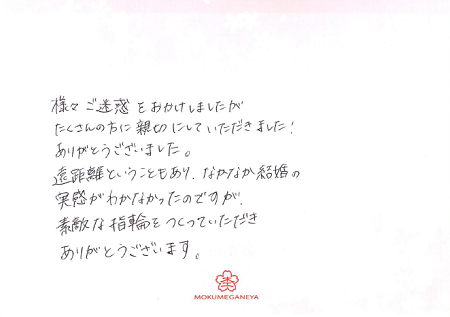 様々ご迷惑をおかけしましたが
たくさんの方に親切にしていただきました！
ありがとうございました。
遠距離ということもあり、なかなか結婚の
実感がわかなかったのですが、
素敵な指輪をつくっていただき
ありがとうございます。
杢
MOKUMEGANEYA